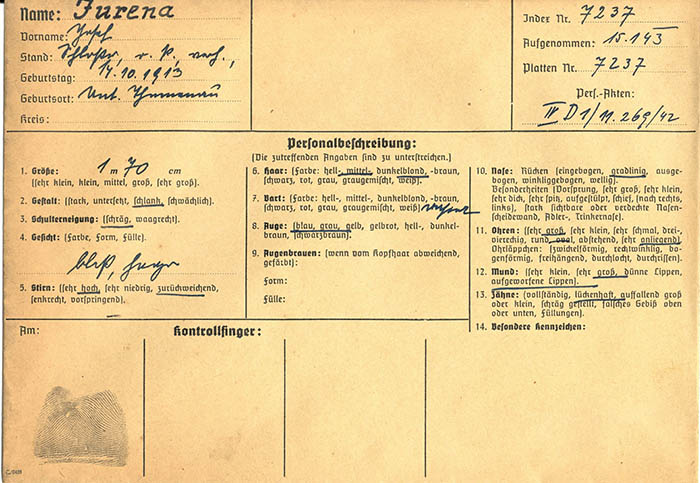 Name: Jurena
Vorname: Josef
Stand: Schlosser, r. k., verh.,
Geburtstag: 14.10.1913
Geburtsort: Unt. Themenau
Kreis:
Index Nr. 7237
Aufgenommen: 15.1.43
Platten Nr. 7237
Pers.-Akten:
IV D 1/11.269/42
Personalbeschreibung:
(Die zutreffenden Angaben sind zu unterstreichen.)
1. Größe: 1 m 70 cm
(sehr klein, klein, mittel, groß, sehr groß).
2. Gestalt: (stark, untersetzt, schlank, schwächlich).
3. Schulterneigung: (schräg, waagrecht).
4. Gesicht: (Farbe, Form, Fülle).
blaß, hager
5. Stirn: (sehr hoch, sehr niedrig, zurückweichend,
senkrecht, vorspringend).
6. Haar: (Farbe: hell-, mittel-, dunkelblond, -braun,
schwarz, rot, grau, graugemischt, weiß).
7. Bart: (Farbe: hell-, mittel-, dunkelblond, -braun,
schwarz, rot, grau, graugemischt, weiß)
8. Auge: (blau, grau, gelb, gelbrot, hell-, dunkel-
braun, schwarzbraun).
9. Augenbrauen: (wenn vom Kopfhaar abweichend,
gefärbt):
Form:
Fülle:
10. Nase: Rücken (eingebogen, gradlinig, ausge-
bogen, winkliggebogen, wellig).
Besonderheiten (Vorsprung, sehr groß, sehr klein,
sehr dick, sehr spitz, aufgestülpt, schief, nach rechts,
links), stark sichtbare oder verdeckte Nasen-
scheidewand, Adler-, Trinkernase).
11. Ohren: (sehr groß, sehr klein, sehr schmal, drei-
viereckig, rund, oval, abstehend, sehr anliegend).
Ohrläppchen: (zwickelförmig, rechtwinklig, bo-
genförmig, freihängend, durchlocht, durchrissen).
12. Mund: (sehr klein, sehr groß, dünne Lippen,
aufgeworfene Lippen).
13. Zähne: (vollständig, lückenhaft, auffallend groß
oder klein, schräg gestellt, falsches Gebiß oben
oder unten, Füllungen).
14. Besondere Kennzeichen:
Am:
Kontrollfinger: